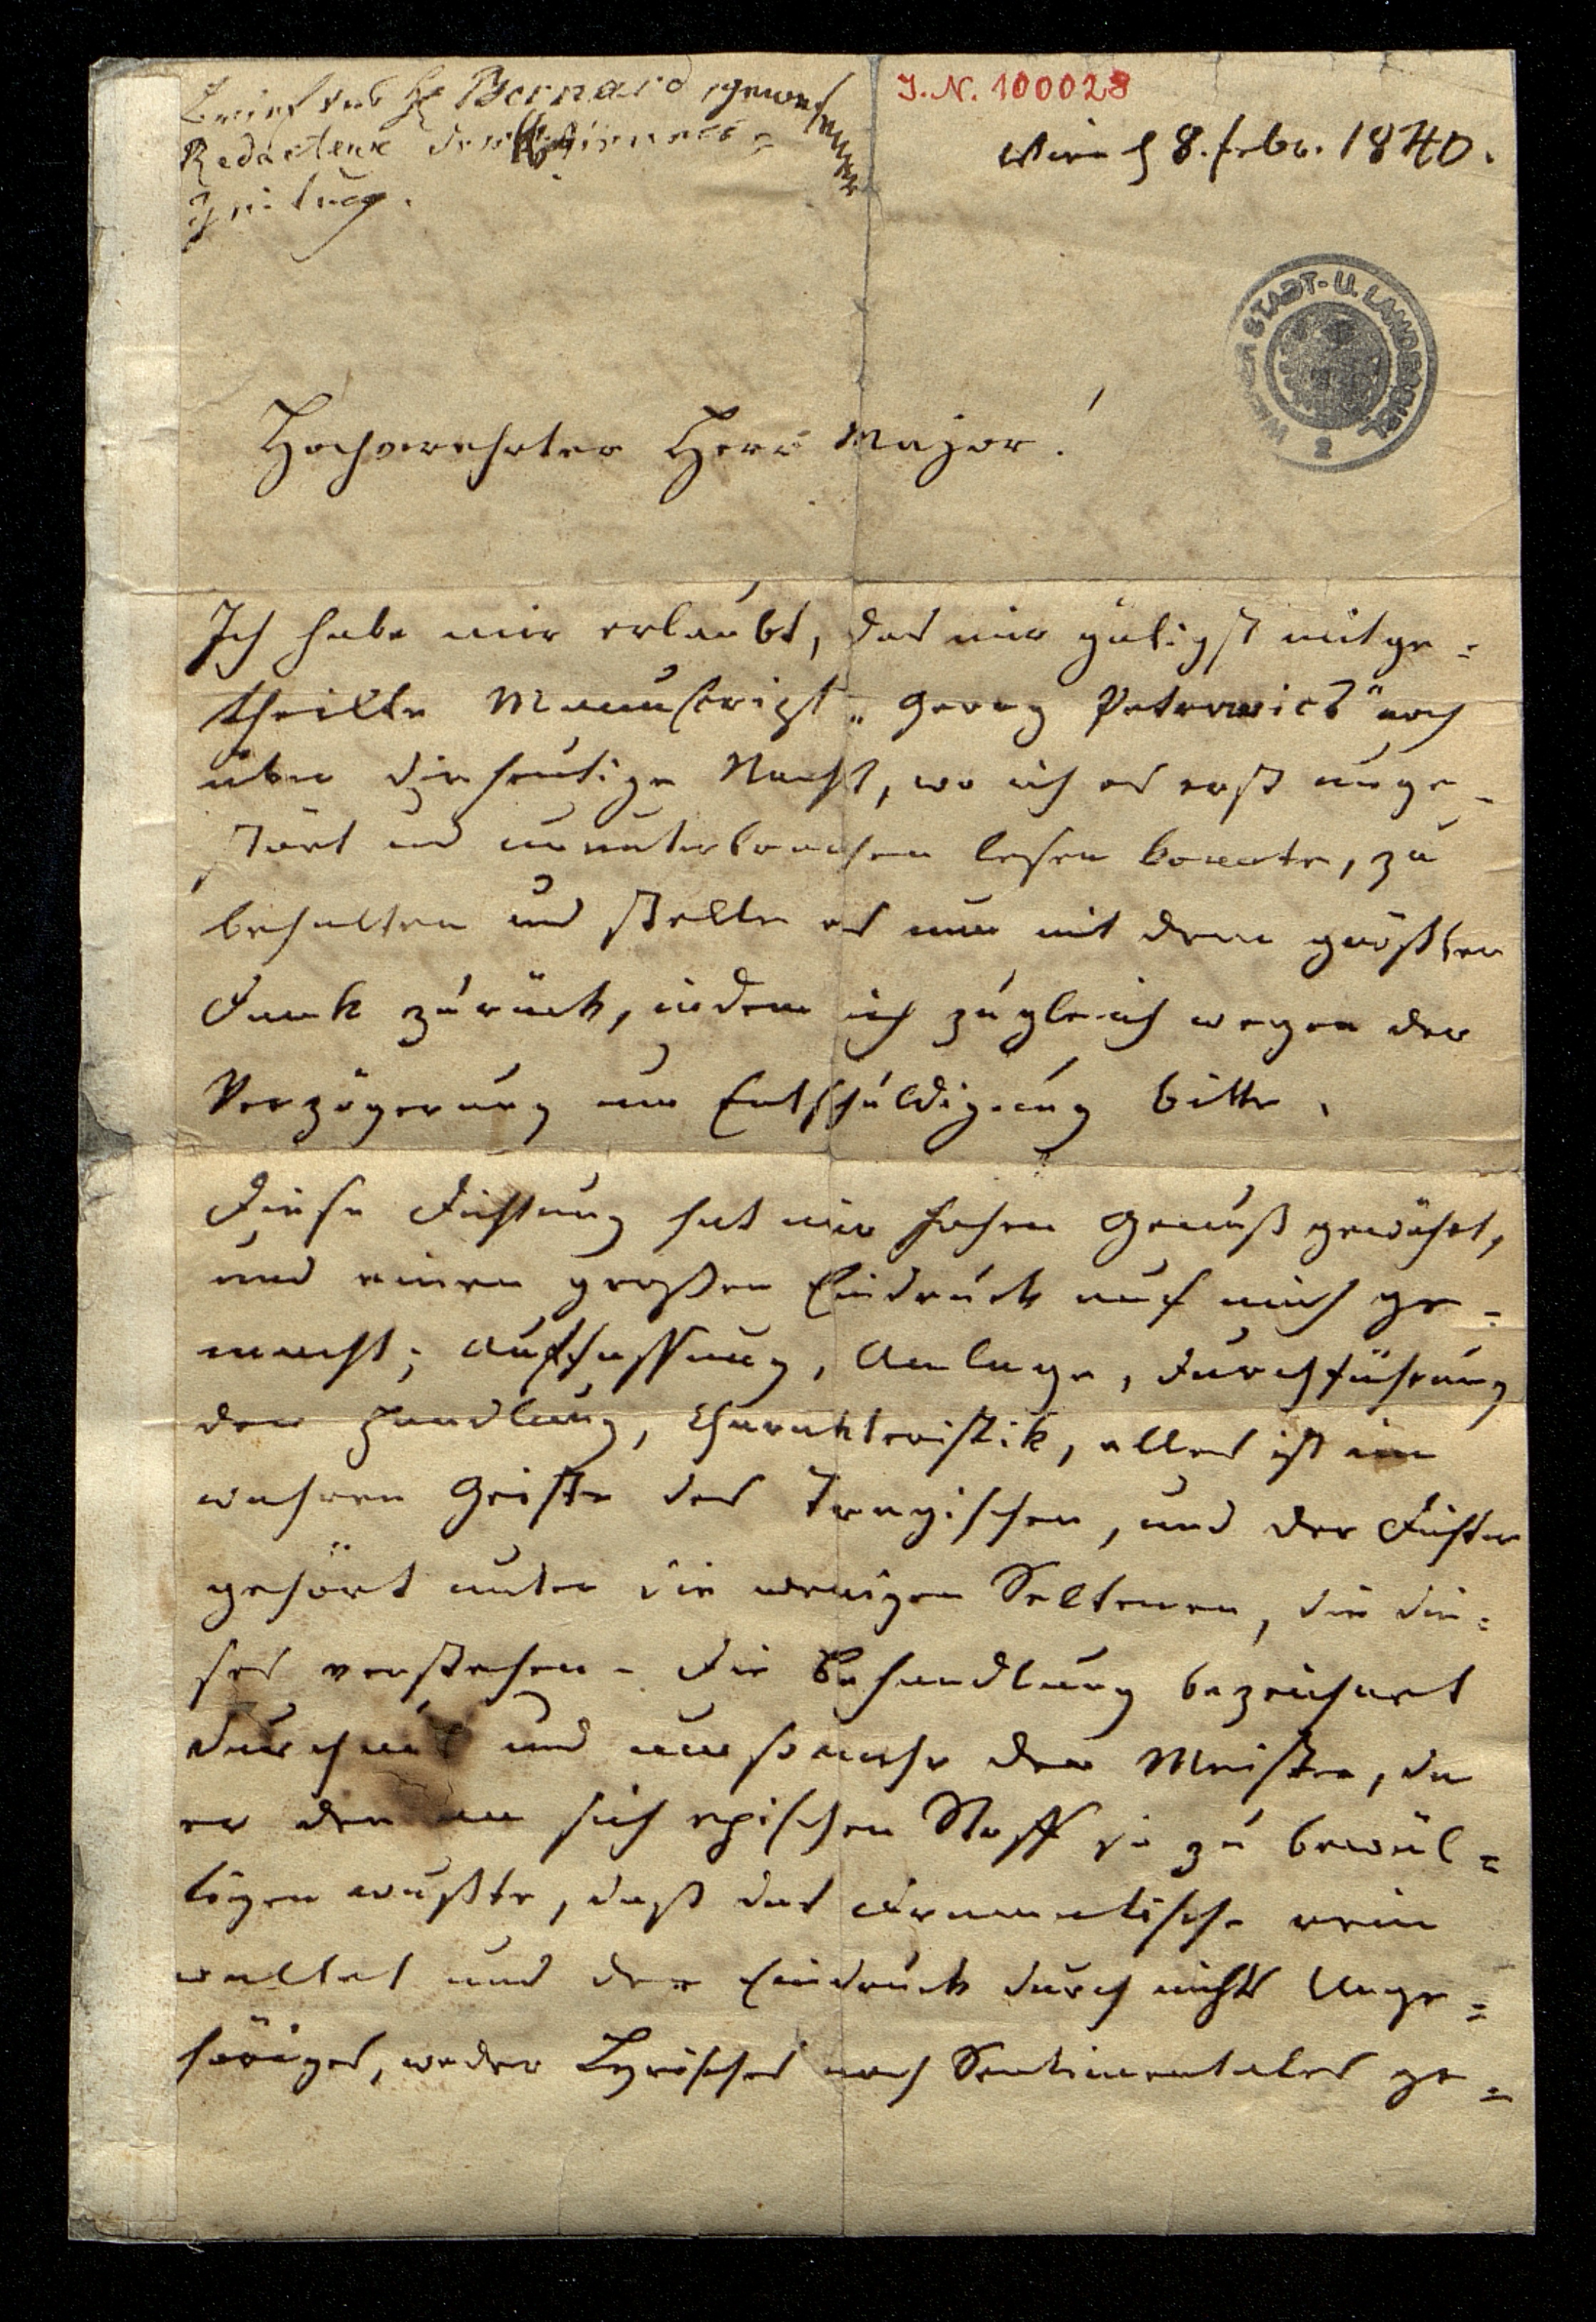 Brief des H Bernard gewesenen
Redacteur der Wiener=
Zeitung.
J.N. 100028
Wien d 8. Febr. 1840.
WIENER STADT- U. LANDESBIBL.
2
Hochverehrter Herr Major!
Ich habe mir erlaubt, das mir gütigst mitge=
theilte Manuscript „Georg Petrowics" noch
über die heutige Nacht, wo ich es erst unge-
stört und ununterbrochen lesen konnte, zu
behalten und stelle es nun mit dem größten
Dank zurück, indem ich zugleich wegen der
Verzögerung um Entschuldigung bitte.
Diese Dichtung hat mir hohen Genuß gewährt,
und einen großen Eindruck auf mich ge=
macht; Auffassung, Anlage, Durchführung
der Handlung, Charakteristik, alles ist im
wahren Geiste des Tragischen, und der Dichter
gehört unter die wenigen Seltenen, die die=
ses verstehen. Die Behandlung bezeichnet
durchaus und umsomehr den Meister, da
er den an sich epischen Stoff so zu bewäl=
tigen wußte, daß das Dramatische rein
waltet und der Eindruck durch nichts Unge=
höriges, weder Lyrisches noch Sentimentales ge=